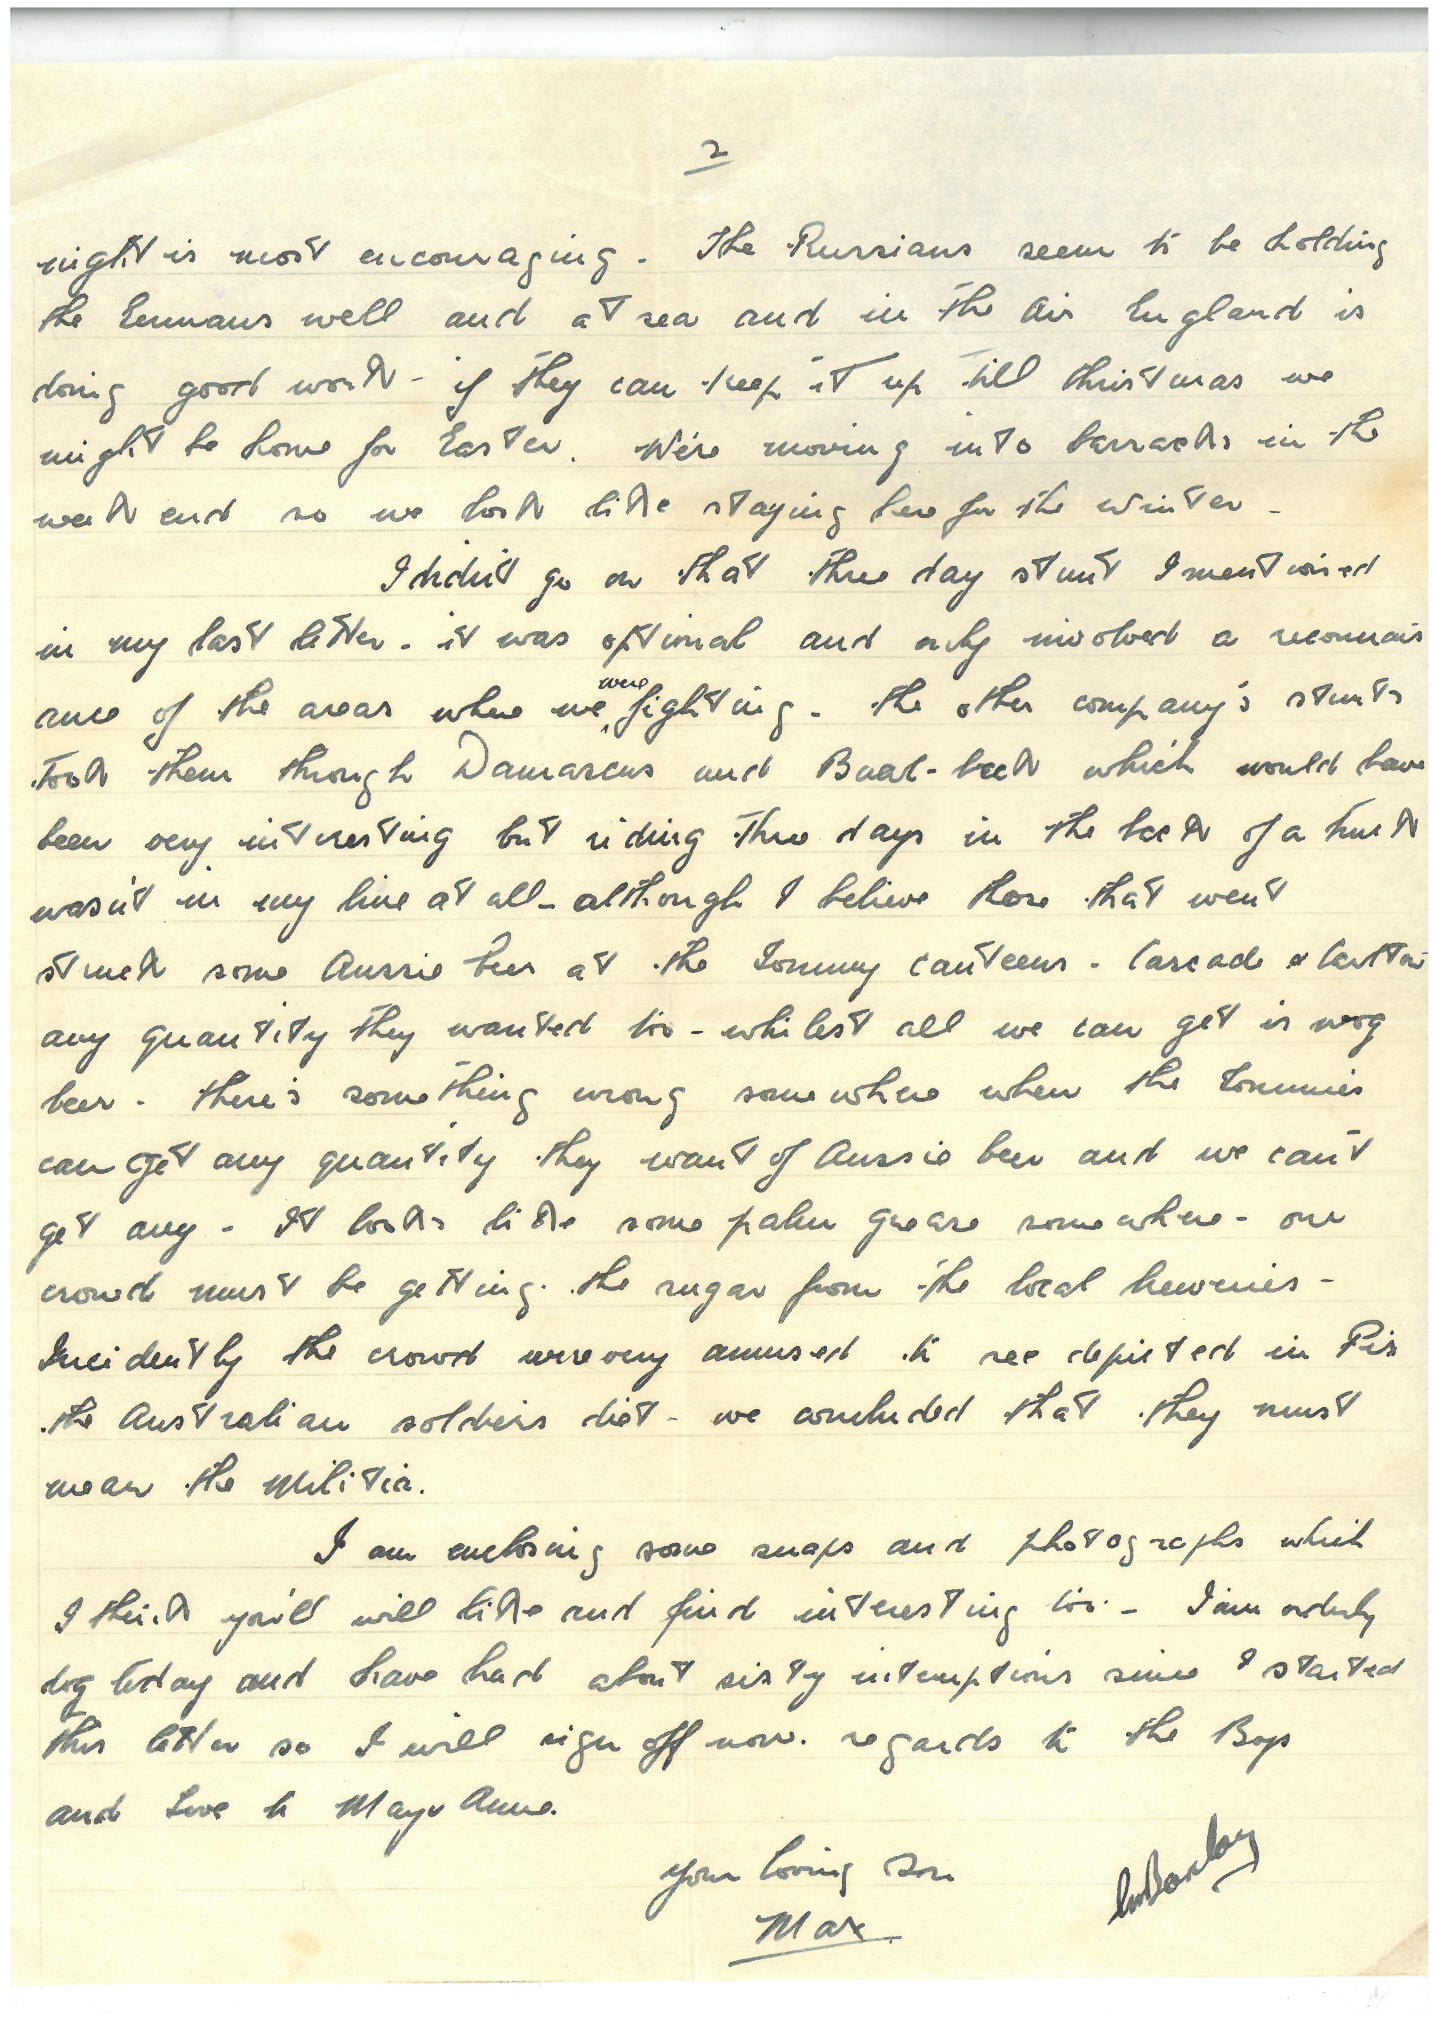 2
night is most encouraging. The Russians seem to be holding
the Germans well and at sea and in the Air England is
doing good work - if they can keep it up till Christmas we
might be home for Easter. We're moving into barracks in the
week end so we look like staying here for the winter -
I didn't go on that three day stunt I mentioned
in my last letter - it was optional and only involved a reconnais
ance of the areas where we were fighting. The other company's stunts
took them through Damascus and Baal-beck which would have
been very interesting but riding three days in the back of a truck
wasn't in my line at all - although I believe those that went
struck some Aussie beer at the Tommy canteens - Cascade &
any quantity they wanted too - whilest all we can get is wog
beer - there's something wrong somewhere when the Tommies
can get any quantity they want of Aussie beer and we can't
get any - It looks like some palm grease somewhere - our
crowd must be getting the sugar from the local breweries -
Incidently the crowd were very amused to see depicted in Pix
the Australian soldiers diet - we concluded that they must
mean the Militia.
I am enclosing some snaps and photographs which
I think you'll will like and find interesting too - I am orderly
dog today and have had about sixty interruptions since I started
this letter so I will sign off now. regards to the Boys
and Love to May & Anne.
Your loving Son
Max